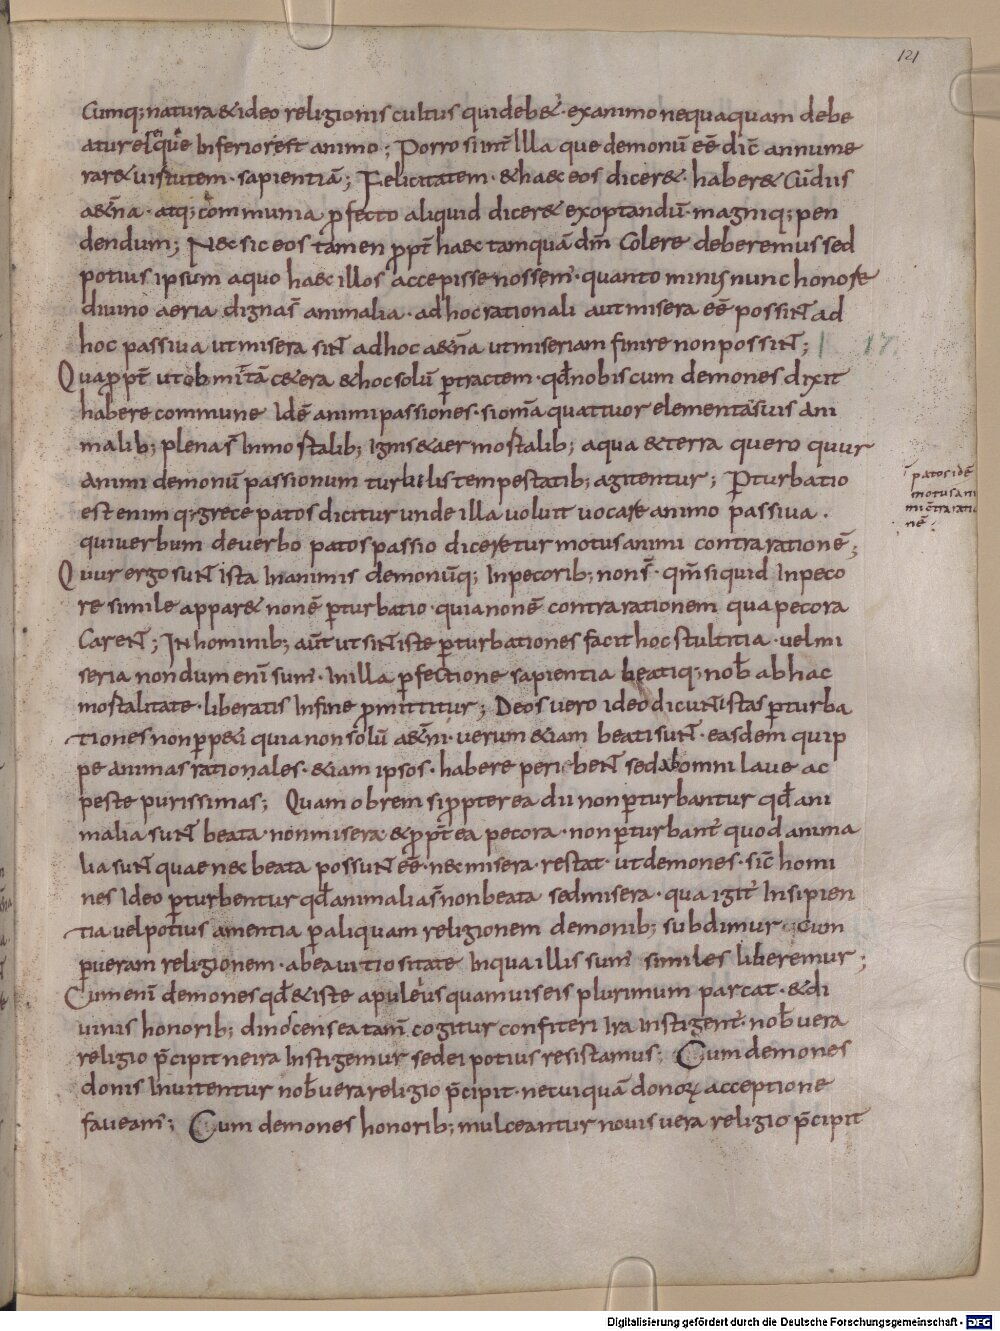 121
Cumq; natura & ideo religionis cultus qui deb&. ex animo nequaquam debe
atur ei que inferior est animo; Porro sunt illa que demonū eē dic̄ annume
rar& uirtutem. sapientiā; Felicitatem. & haec eos dicer&. haber& cūdiis
a&ñna. atq; communia ꝓfecto aliquid dicer& exoptandū magniq; pen
dendum; Nec sic eos tamen ꝓpt̄ haec tamquā dm̄ colere deberemus sed
potius ipsum a quo haec illos accepisse nossem̄. quanto minus nunc honore
diuino aeria digna s̄ animalia. ad hoc rationali aut misera eē possiNT ad
hoc passiua ut misera siNT ad hoc a&ñna ut miseriam finire non possiNT; 17.
Quaꝓpt̄ ut ob mittā c&era & hoc solū ꝑtractem. qđ nobiscum demones dixit
habere commune Idē animi passiones. si om̄a quattuor elementa suis ani
malib; plena s̄ Inmortalib; ignis & aer mortalib; aqua & terra quero quur
animi demonū passionum turbelis tempestatib; agitentur; Pꝑturbatio
est enim q̨ grece patos dicitur unde illa uoluit uocare animo passiua.
qui uerbum de uerbo patos passio diceretur motus animi contra rationē;
patos idē
motus ani
mi c̄tra ratio
nē
Quur ergo suNT ista In animis demonūq; In pecorib; non s̄. qm̄ si quid In peco
re simile appar& non ē ꝑturbatio. quia non ē contra rationem qua pecora
careNT; In hominib; aūt ut siNT iste ꝑturbationes facit hoc stultitia. uel mi
seria nondum eni sum̄. In illa ꝑfectione sapientia beatiq; nob̄ ab hac
mortalitate. liberatis In fine ꝓmittitur; Deos uero ideo dicuNT istas ꝑturba
tiones non ꝑp&i quia non solū a&ñi. uerum &iam beati suNT. easdem quip
pe animas rationales. &iam ipsos. habere perhibeNT sed ab omni laue ac
peste purissimas; Quam obrem si ꝓpterea dii non ꝑturbantur qđ ani
malia suNT beata. non misera & ꝓpt̄ ea pecora. non ꝑturbant̄ quod anima
lia suNT quae nec beata possuNT eē. nec misera. restat. ut demones. sic̄ homi
nes Ideo ꝑturbentur qđ animalia s̄ non beata sed misera. qua igit̄ Insipien
tia uel potius amentia ꝑ aliquam religionem demonib; subdimur. Cum
ꝑ ueram religionem. ab ea uitiositate In qua illis sum̄ similes liberemur;
Cum eni demones qđ & iste apuleus quam uis eis plurimum parcat. & di
uinis honorib; dinos censea tam̄ cogitur confiteri ira Instigent̄. nob̄ uera
religio p̄cipit ne ira Instigemur sed ei potius resistamus; Cum demones
donis Inuitentur nob̄ uera religio p̄cipit. ne cuiquā donoꝝ acceptione
faueam̄; Cum demones honorib; mulceantur nouis uera religio p̄cipit
Digitalisierung gefördert durch die Deutsche Forschungsgemeinschaft - DFG